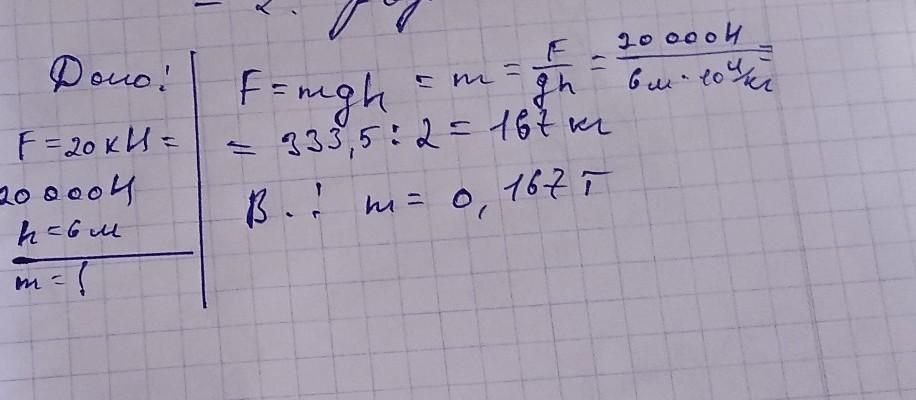 Дано:
F = 20 кН =
20 000 Н
h = 6 м
m = ?
F = mgh = m = F/gh = 20 000 Н / 6 м · 10 Н/кг =
= 333,5 : 2 = 167 кг
В.: m = 0,167 т